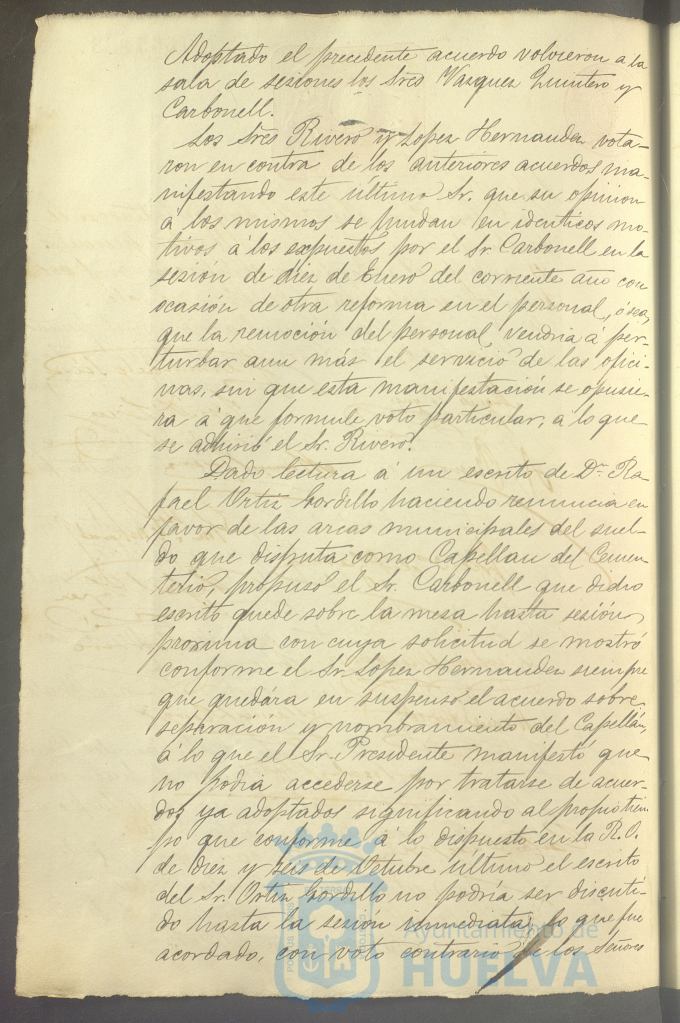 Adoptado el precedente acuerdo volvieron a la
sala de sesiones los Sres Vazquez Quintero y
Carbonell.
Los Sres Rivero y Lopez Hernandez vota-
ron en contra de los anteriores acuerdos ma-
nifestando este ultimo Sr. que su opinion
a los mismos se fundan en identicos mo-
tivos á los expuestos por el Sr Carbonell en la
sesión de diez de Enero del corriente año con
ocasión de otra reforma en el personal, ó sea,
que la remoción del personal vendria á per-
turbar aun más el servicio de las ofici-
nas, sin que esta manifestación se opusie-
ra á que formule voto particular, a lo que
se adhirió el Sr. Rivero.
Dado lectura á un escrito de Dn. Ra-
fael Ortiz Gordillo haciendo renuncia en
favor de las arcas municipales del suel-
do que disfruta como Capellan del Cemen-
terio, propuso el Sr. Carbonell que dicho
escrito quede sobre la mesa hasta sesión
proxima con cuya solicitud se mostró
conforme el Sr Lopez Hernandez siempre
que quedára en suspenso el acuerdo sobre
separación y nombramiento del Capellán,
á lo que el Sr. Presidente manifestó que
no podia accederse por tratarse de acuer-
dos ya adoptados significando al propio tiem-
po que conforme á lo dispuesto en la R.O.
de diez y seis de Octubre ultimo el escrito
del Sr. Ortiz Gordillo no podría ser discuti-
do hasta la sesión inmediata, lo que fue
acordado, con voto contrario de los Señores
Ayuntamiento de
HUELVA